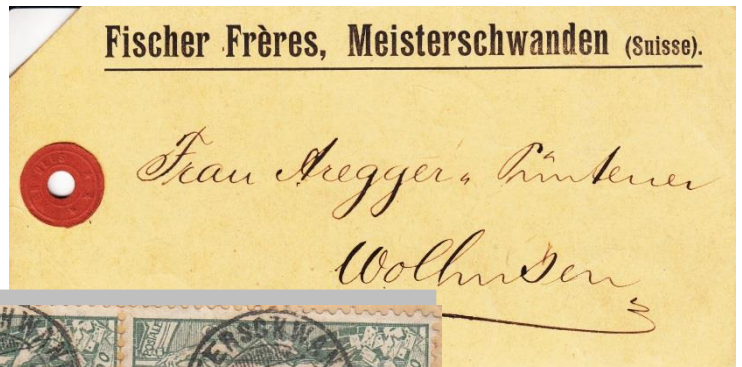 Fischer Frères, Meisterschwanden (Suisse).
Frau Aregger-Püntener
Wolhusen
HWAN
ERSCHWAN